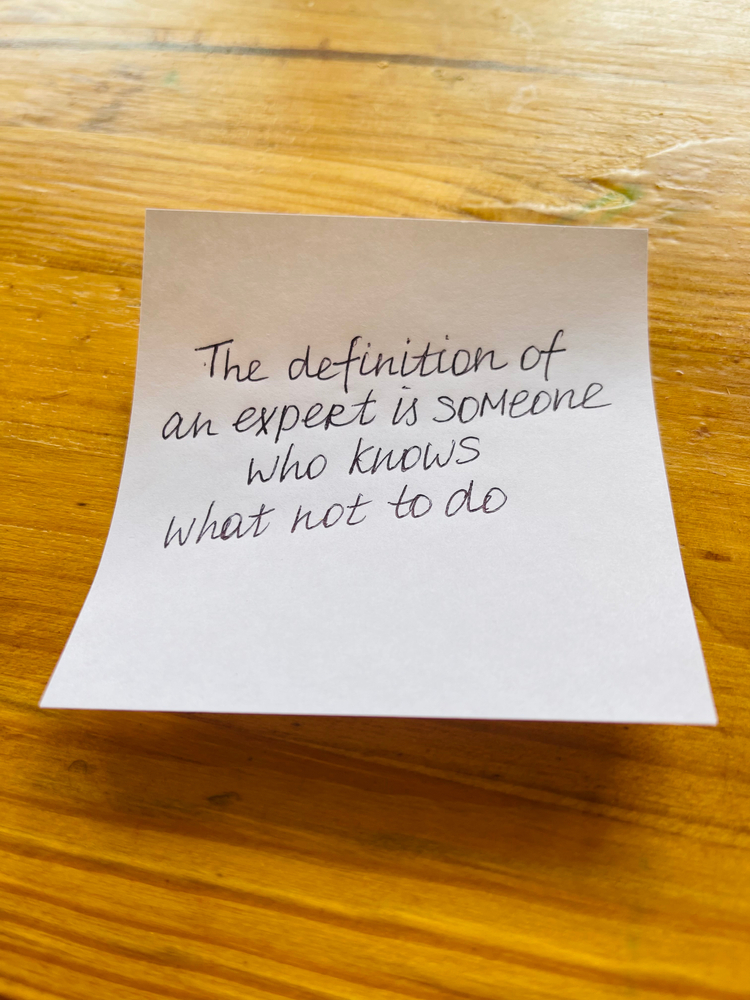 The definition of
an expert is someone
who knows
what not to do